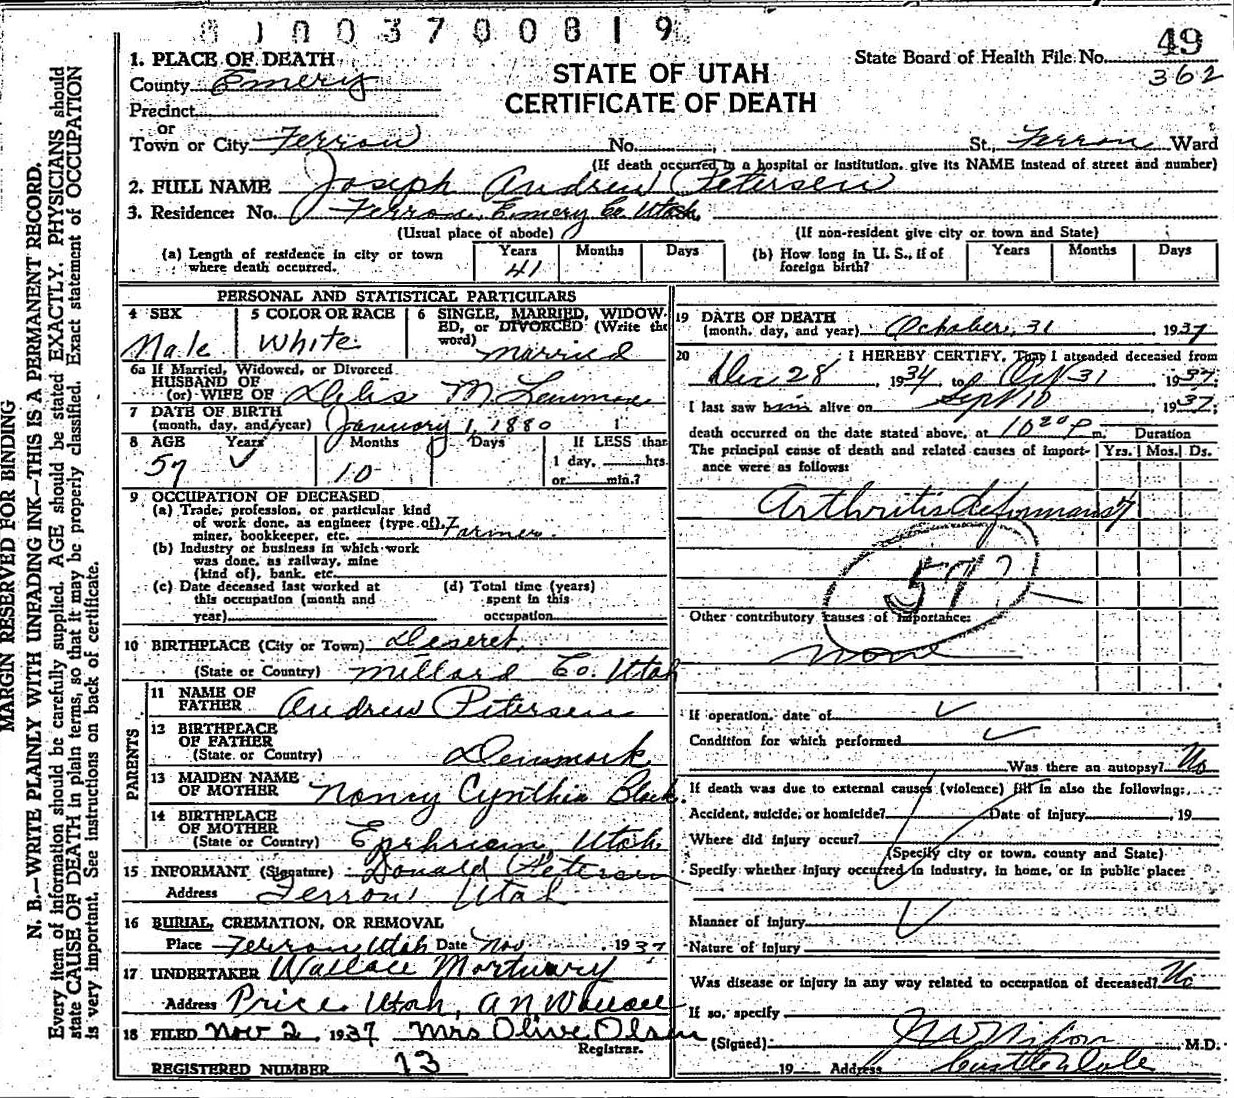 8 1 0 0 3 7 0 0 8 1 9
49
State Board of Health File No. 362
STATE OF UTAH
CERTIFICATE OF DEATH
1. PLACE OF DEATH
County Emery
Precinct
or
Town or City Ferron No. St., Ferron Ward
(If death occurred in a hospital or institution, give its NAME instead of street and number)
2. FULL NAME Joseph Andrew Petersen
3. Residence: No. Ferron, Emery Co. Utah.
(Usual place of abode) (If non-resident give city or town and State)
(a) Length of residence in city or town where death occurred. Years 41 Months Days
(b) How long in U. S., if of foreign birth? Years Months Days
PERSONAL AND STATISTICAL PARTICULARS
4 SEX Male
5 COLOR OR RACE White
6 SINGLE, MARRIED, WIDOWED, or DIVORCED (Write the word) Married
6a If Married, Widowed, or Divorced
HUSBAND OF
(or) WIFE OF M.
7 DATE OF BIRTH
(month, day, and year) January 1, 1880
8 AGE Years 57 Months 10 Days
If LESS than
1 day, hrs.
or min.?
9 OCCUPATION OF DECEASED
(a) Trade, profession, or particular kind
of work done, as engineer (type of),
miner, bookkeeper, etc. Farmer.
(b) Industry or business in which work
was done, as railway, mine
(kind of), bank, etc.
(c) Date deceased last worked at
this occupation (month and
year)
(d) Total time (years)
spent in this
occupation
10 BIRTHPLACE (City or Town) Deseret,
(State or Country) Millard Co. Utah
PARENTS
11 NAME OF
FATHER Andrew Petersen
12 BIRTHPLACE
OF FATHER
(State or Country) Denmark
13 MAIDEN NAME
OF MOTHER Nancy Cynthia Black.
14 BIRTHPLACE
OF MOTHER
(State or Country) Ephriam, Utah
15 INFORMANT (Signature) Donald Petersen
Address Ferron Utah
16 BURIAL, CREMATION, OR REMOVAL
Place Ferron, Utah Date Nov , 1937
17 UNDERTAKER Wallace Mortuary
Address Price Utah, A N Wallace
18 FILED Nov 2 1937 Mrs Olive Olsen
Registrar.
REGISTERED NUMBER 13
19 DATE OF DEATH
(month, day, and year) October, 31 1937
20 I HEREBY CERTIFY, That I attended deceased from
Dec 28, 1934 to Oct 31 1937;
I last saw him alive on Sept 10, 1937;
death occurred on the date stated above, at 10 20 P m. Duration
The principal cause of death and related causes of importance were as follows: Yrs. Mos. Ds.
Arthritis deformans 7
57?
Other contributory causes of importance:
none
If operation, date of
Condition for which performed
Was there an autopsy? No
If death was due to external causes (violence) fill in also the following:
Accident, suicide, or homicide? Date of injury , 19
Where did injury occur?
(Specify city or town, county and State)
Specify whether injury occurred in industry, in home, or in public place:
Manner of injury
Nature of injury
Was disease or injury in any way related to occupation of deceased? No
If so, specify
(Signed) J W Nixon M.D.
19 Address Castle Dale
MARGIN RESERVED FOR BINDING
N. B.—WRITE PLAINLY WITH UNFADING INK—THIS IS A PERMANENT RECORD.
Every item of information should be carefully supplied. AGE should be stated EXACTLY. PHYSICIANS should
state CAUSE OF DEATH in plain terms, so that it may be properly classified. Exact statement of OCCUPATION
is very important. See instructions on back of certificate.